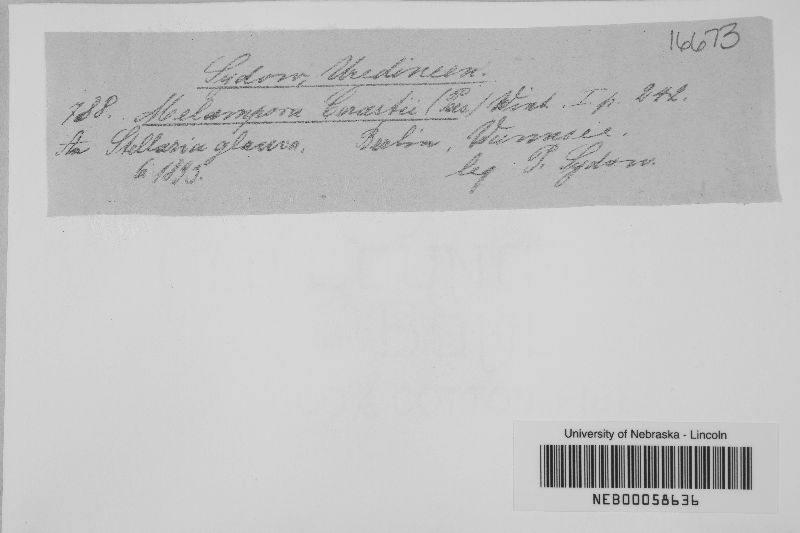 16673
Sydow, Uredineen.
788. Melampora Cerastii (Pers.) Wint. I p. 242.
An Stellaria glauca. Berlin, Wannsee.
6 1893. leg P. Sydow.
University of Nebraska - Lincoln
NEB00058636